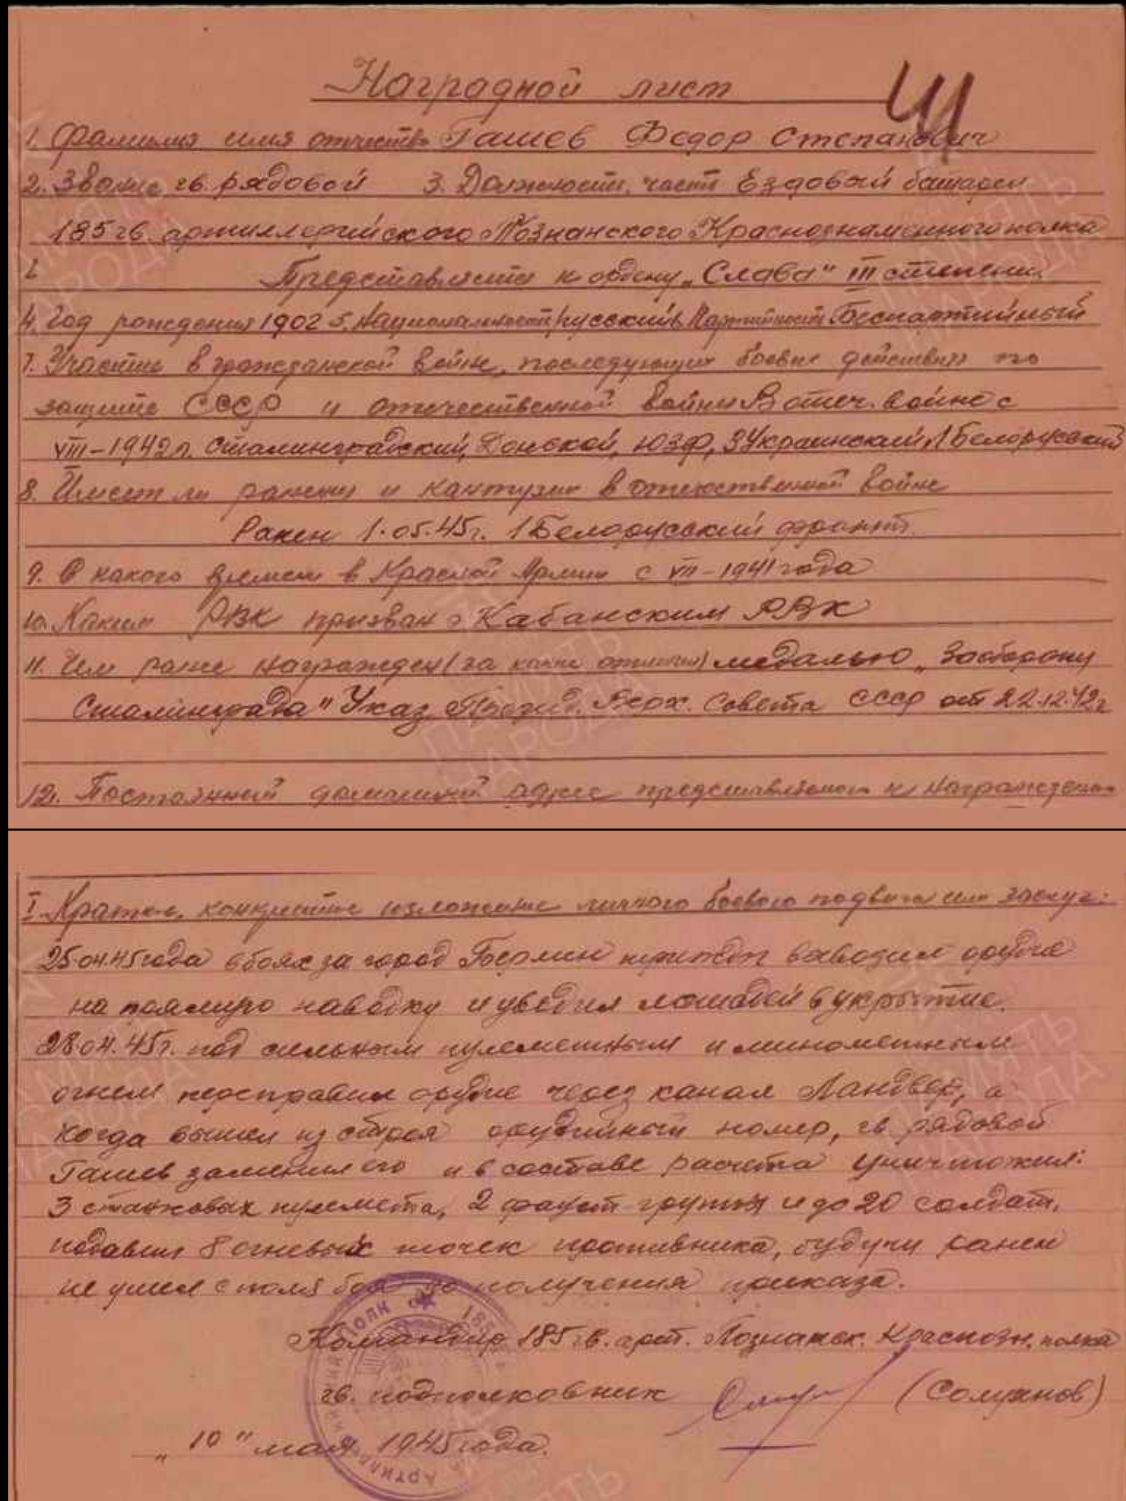 Наградной лист
41
1. Фамилия имя отчество Гашев Федор Степанович
2. Звание гв. рядовой 3. Должность, часть Ездовый батареи
185 гв. артиллерийского Познанского Краснознаменного полка
Представляется к ордену „Слава" III степени
4. Год рождения 1902 5. Национальность русский 6. Партийность Беспартийный
7. Участие в гражданской войне, последующих боевых действиях по
защите СССР и отечественной войне В отеч. войне с
VIII-1942 г. Сталинградский, Донской, ЮЗФ, 3 Украинский, 1 Белорусский
8. Имеет ли ранения и контузии в отечественной войне
Ранен 1.05.45г. 1 Белорусский фронт.
9. С какого времени в Красной Армии с VII-1941 года
10. Каким РВК призван Кабанским РВК
11. Чем ранее награжден (за какие отличия) медалью „За оборону
Сталинграда" Указ Презид. Верх. Совета СССР от 22.12.42г
12. Постоянный домашний адрес представляемого к награждению
I. Кратко, конкретное изложение личного боевого подвига или заслуг:
25.04.45 года в боях за город Берлин выводил орудие
на прямую наводку и уводил лошадей в укрытие.
28.04.45г. под сильным пулеметным и минометным
огнем переправил орудие через канал Ландвер, а
когда вышел из строя орудийный номер, гв. рядовой
Гашев заменил его и в составе расчета уничтожил:
3 станковых пулемета, 2 фауст-группы и до 20 солдат,
подавил 8 огневых точек противника, будучи ранен
не ушел с поля боя до получения приказа.
Командир 185 гв. арт. Познанск. Краснозн. полка
гв. подполковник
„10" мая 1945 года.